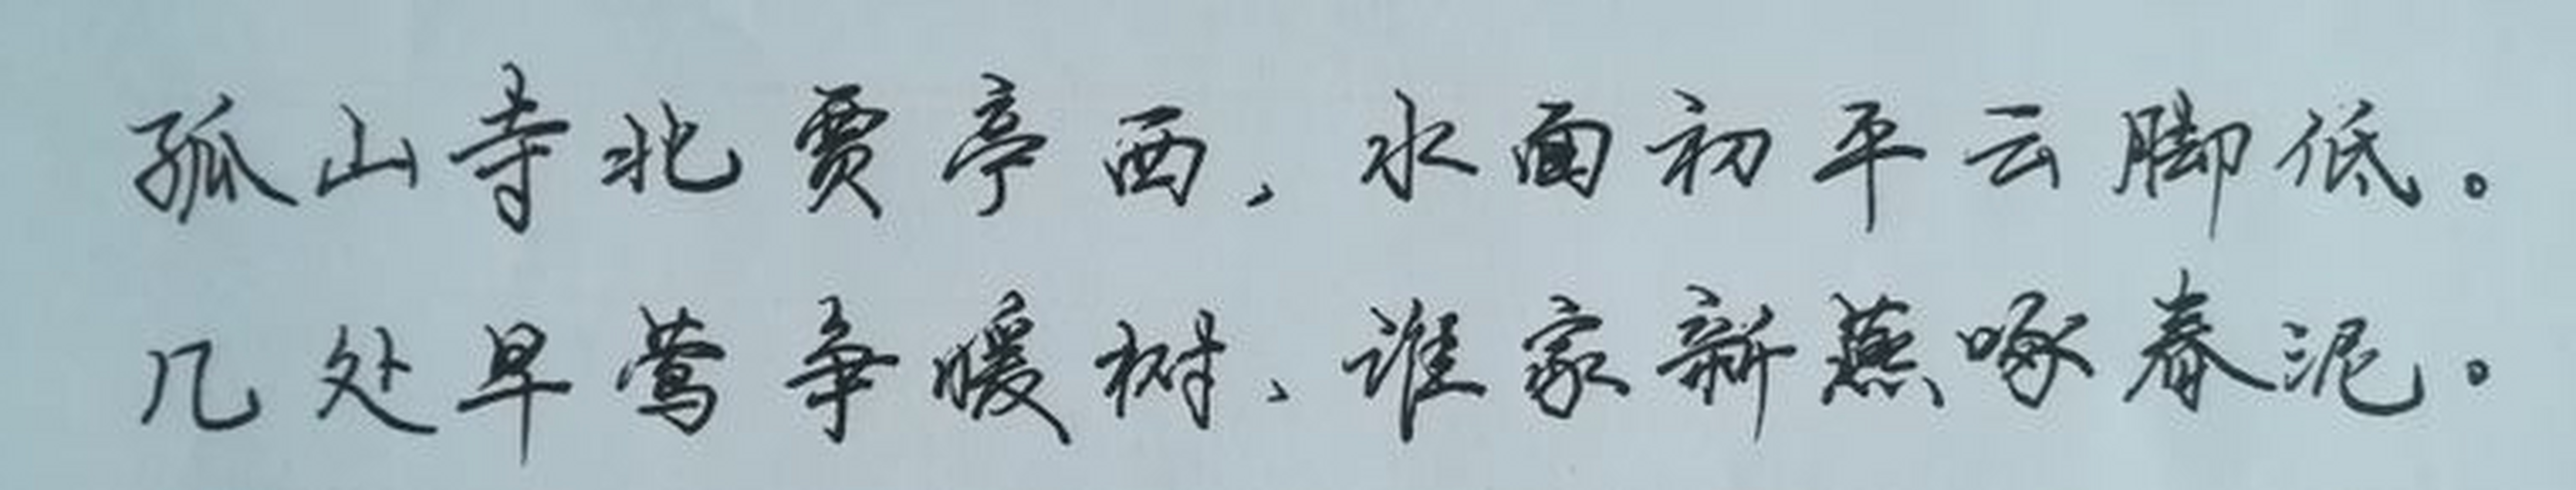 孤山寺北贾亭西，水面初平云脚低。
几处早莺争暖树，谁家新燕啄春泥。